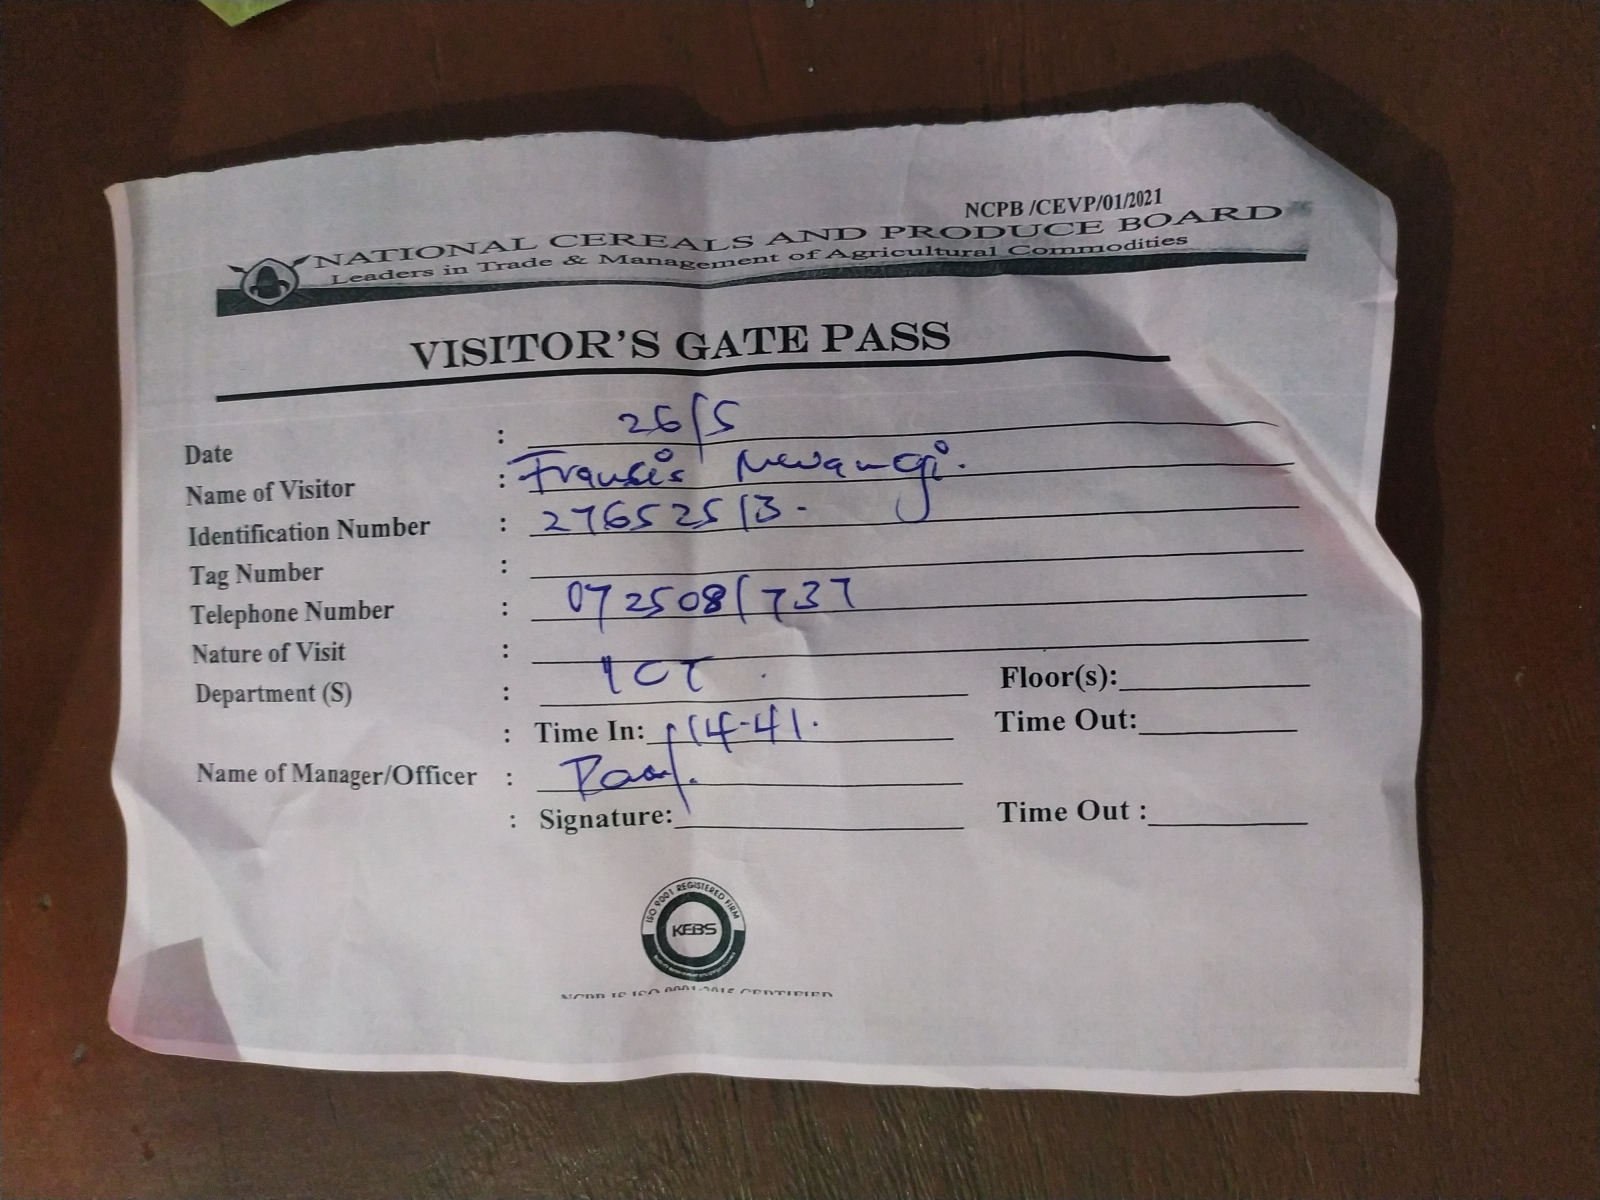 NCPB /CEVP/01/2021
NATIONAL CEREALS AND PRODUCE BOARD
Leaders in Trade & Management of Agricultural Commodities
VISITOR'S GATE PASS
Date : 26/5
Name of Visitor : Francis
Identification Number : 27652513.
Tag Number :
Telephone Number : 0725081737
Nature of Visit :
Department (S) : ICT. Floor(s):
: Time In: 14-41. Time Out:
Name of Manager/Officer :
: Signature: Time Out :
ISO 9001 REGISTERED FIRM
KEBS